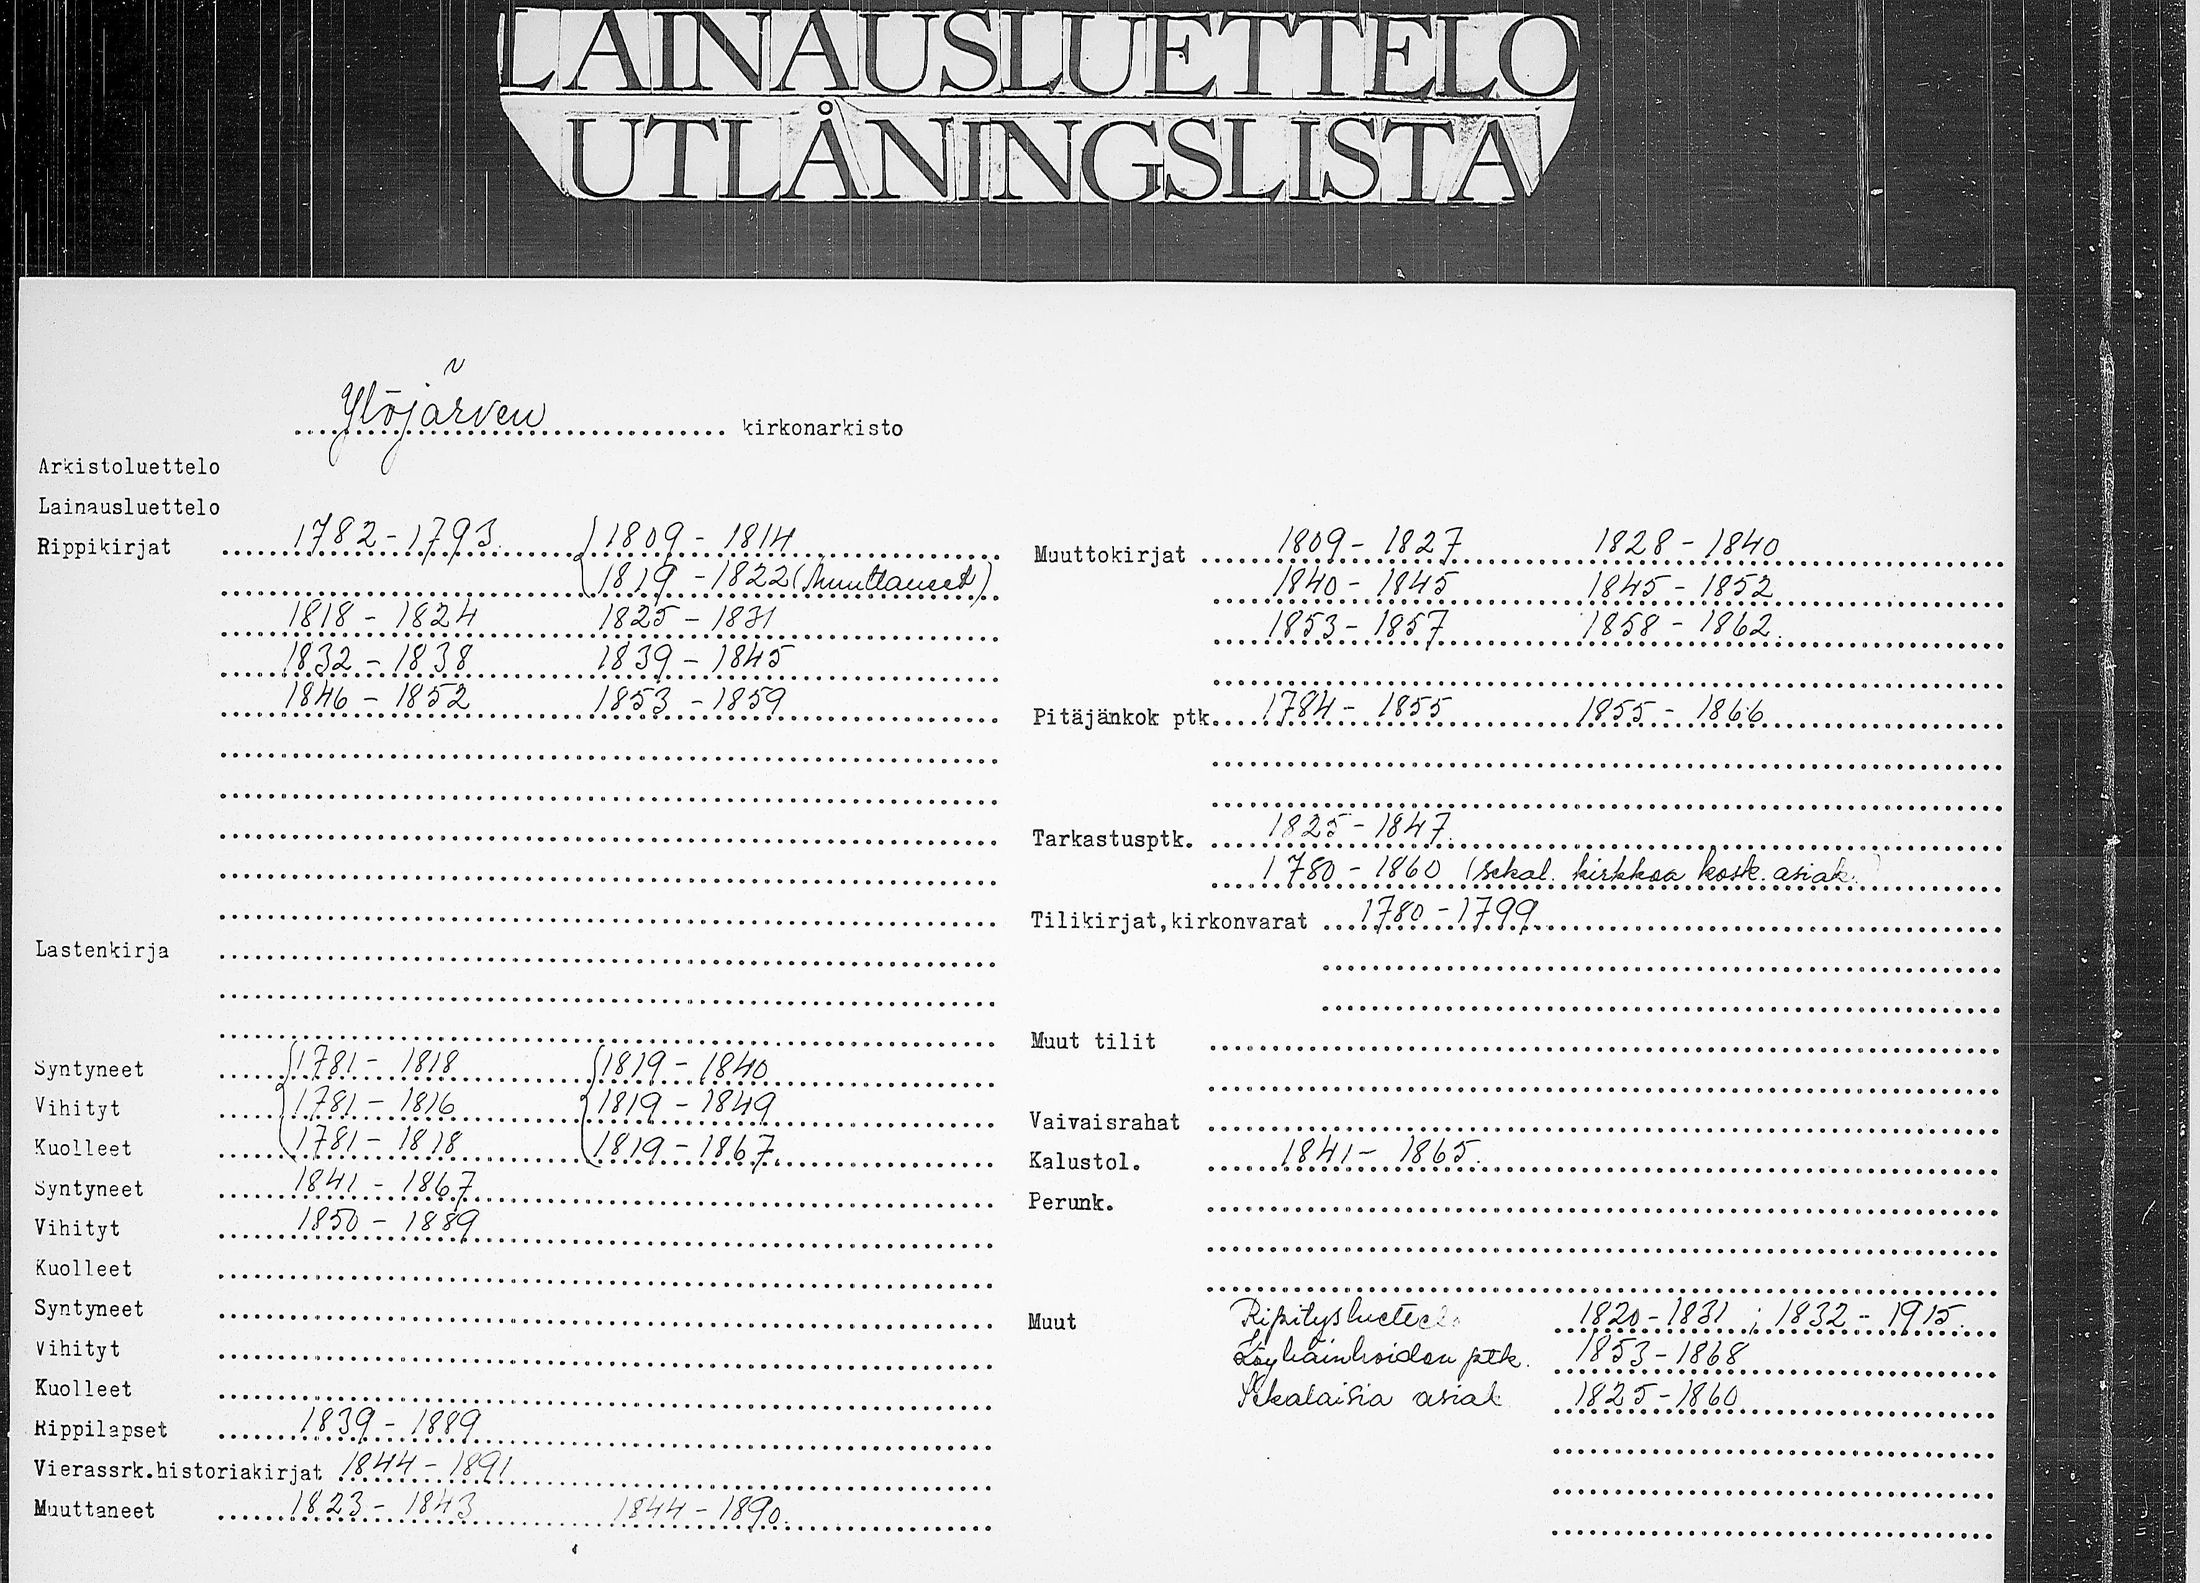 LAINAUSLUETTELO
UTLÅNINGSLISTA
Ylöjärven kirkonarkisto
Arkistoluettelo
Lainausluettelo
Rippikirjat 1782-1793 1809 - 1814
1819 - 1822 (Muuttaneet)
1818 - 1824 1825 - 1831
1832 - 1838 1839 - 1845
1846 - 1852 1853 - 1859
Lastenkirja
Syntyneet 1781 - 1818 1819 - 1840
Vihityt 1781 - 1816 1819 - 1849
Kuolleet 1781 - 1818 1819 - 1867
Syntyneet 1841 - 1867
Vihityt 1850 - 1889
Kuolleet
Syntyneet
Vihityt
Kuolleet
Rippilapset 1839 - 1889
Vierassrk.historiakirjat 1844 - 1891
Muuttaneet 1823 - 1843 1844 - 1890
Muuttokirjat 1809 - 1827 1828 - 1840
1840 - 1845 1845 - 1852
1853 - 1857 1858 - 1862
Pitäjänkok ptk. 1784 - 1855 1855 - 1866
Tarkastusptk. 1825 - 1847
1780 - 1860 (sekal. kirkkoa kosk. asiak.)
Tilikirjat, kirkonvarat 1780 - 1799
Muut tilit
Vaivaisrahat
Kalustol. 1841 - 1865
Perunk.
Muut Ripitysluettelo 1820-1831 ; 1832 - 1915
Köyhäinhoidon ptk. 1853-1868
Sekalaisia asiak 1825-1860